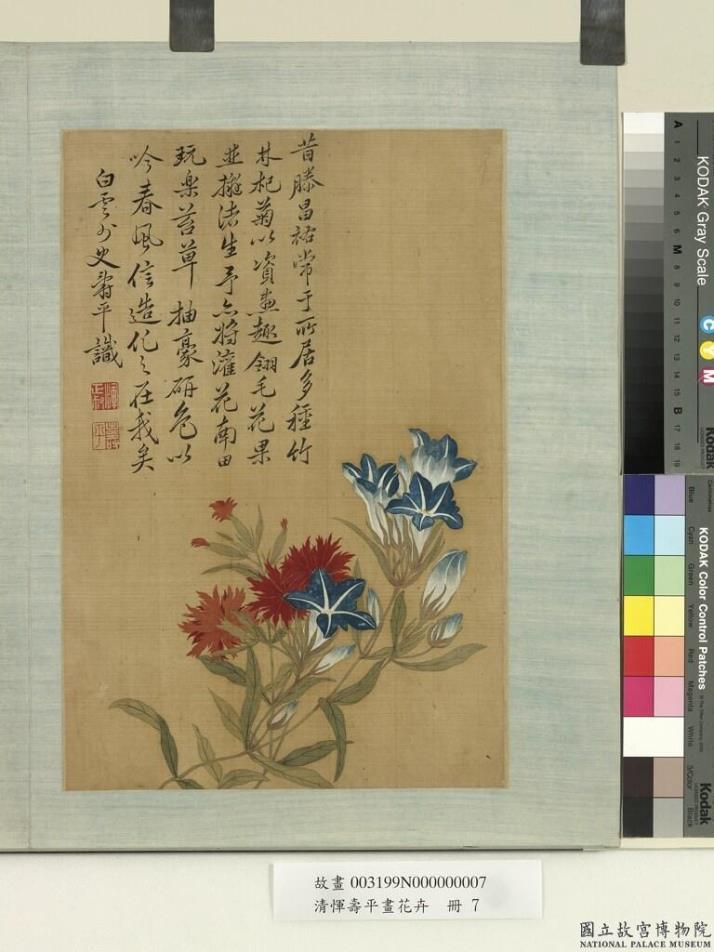 昔滕昌祐常于所居多種竹
林杞菊以資畫趣翎毛花果
並擬諸生予亦將灌花南田
玩樂苔草抽豪研色以
吟春風信造化之在我矣
白雲外史壽平識
A 1 2 3 4 5 6 M 8 9 10 11 12 13 14 15 B 17 18 19
KODAK Gray Scale
C Y M
Kodak
KODAK Color Control Patches
Blue Cyan Green Yellow Red Magenta White 3/Color Black
Kodak
故畫 003199N000000007
清惲壽平畫花卉 冊 7
國立故宮博物院
NATIONAL PALACE MUSEUM